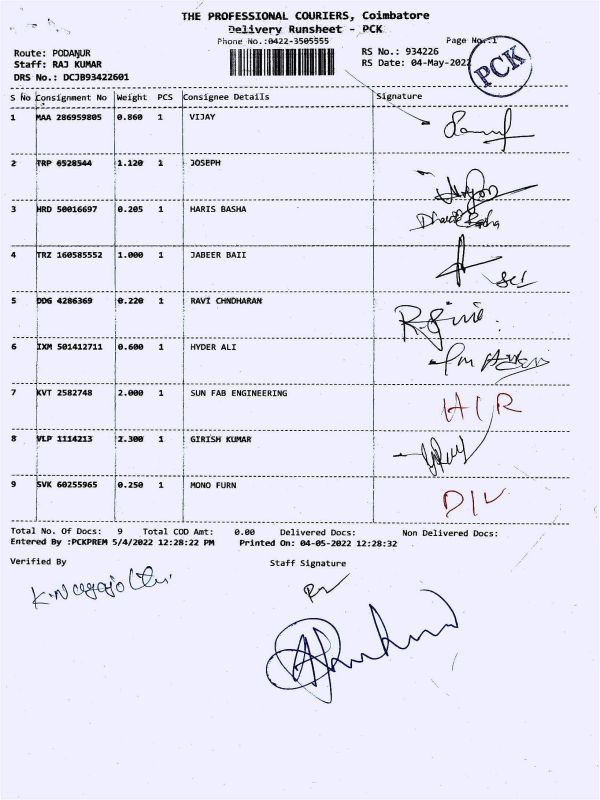 THE PROFESSIONAL COURIERS, Coimbatore
Delivery Runsheet - PCK
Phone No.:0422-3505555 Page No.:1
Route: PODANUR RS No.: 934226
Staff: RAJ KUMAR RS Date: 04-May-2022
DRS No.: DCJB93422601
PCK
S No Consignment No Weight PCS Consignee Details Signature
1 MAA 286959805 0.860 1 VIJAY
2 TRP 6528544 1.120 1 JOSEPH
3 HRD 50016697 0.205 1 HARIS BASHA
4 TRZ 160585552 1.000 1 JABEER BAII
5 DDG 4286369 0.220 1 RAVI CHNDHARAN
6 IXM 501412711 0.600 1 HYDER ALI
7 KVT 2582748 2.000 1 SUN FAB ENGINEERING H/R
8 VLP 1114213 2.300 1 GIRISH KUMAR
9 SVK 60255965 0.250 1 MONO FURN D/L
Total No. Of Docs: 9 Total COD Amt: 0.00 Delivered Docs: Non Delivered Docs:
Entered By :PCKPREM 5/4/2022 12:28:22 PM Printed On: 04-05-2022 12:28:32
Verified By Staff Signature